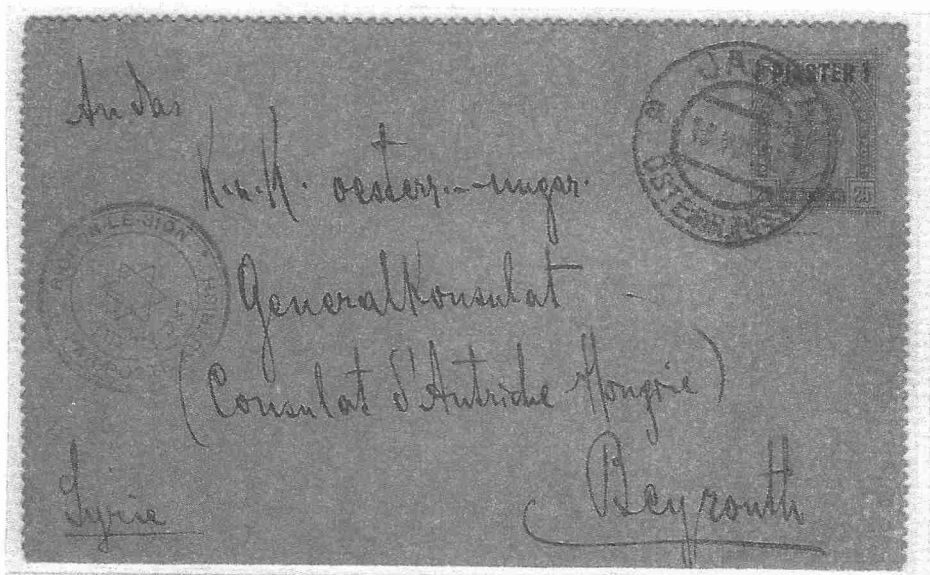 An das
K. u. K. oesterr.-ungar.
GeneralKonsulat
(Consulat d'Autriche Hongrie)
Beyrouth
Syrie
1 PIASTER 1
25
JAFFA
ÖSTERR. POST
RICHON-LE-SION